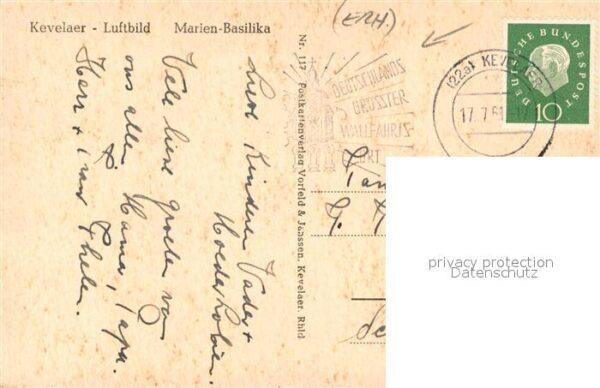 Kevelaer - Luftbild    Marien-Basilika
(ERH.)
Nr. 117 Postkartenverlag Vorfeld & Janssen, Kevelaer, Rhld
DEUTSCHLANDS
GRÖSSTER
WALLFAHRTS-
ORT
(22a) KEVELAER
17.7.61
DEUTSCHE BUNDESPOST
10
Lieve Kinderen Vader +
Moeder
Vele lieve groeten van
ons allen, Mama, Papa.
Herr +
privacy protection
Datenschutz